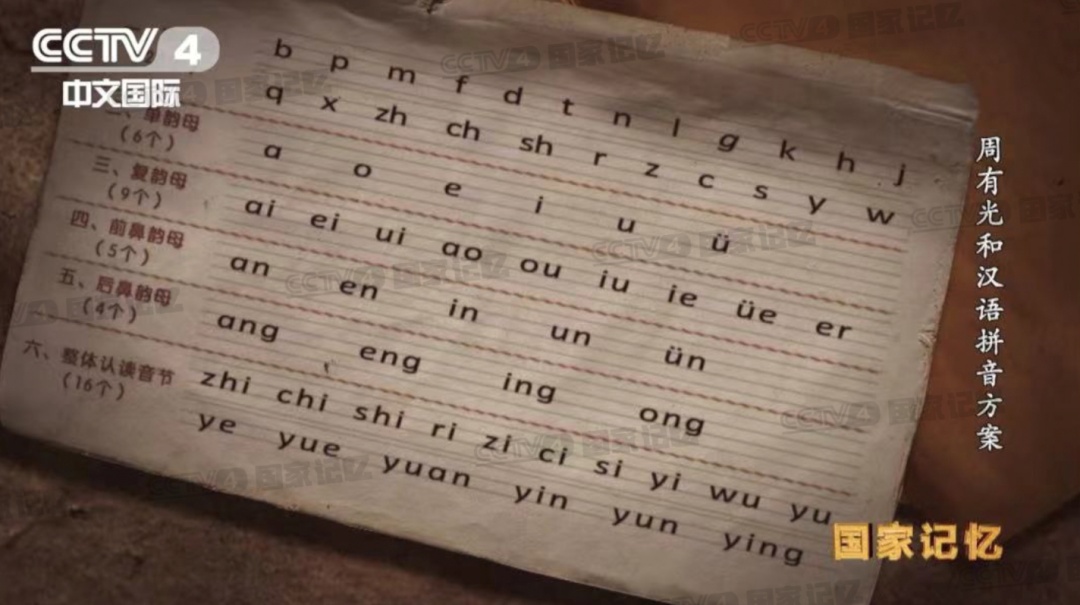 CCTV 4
中文国际
b p m f d t n l g k h j
q x zh ch sh r z c s y w
二、单韵母
(6个)
a o e i u ü
三、复韵母
(9个)
ai ei ui ao ou iu ie üe er
四、前鼻韵母
(5个)
an en in un ün
五、后鼻韵母
(4个)
ang eng ing ong
六、整体认读音节
(16个)
zhi chi shi ri zi ci si yi wu yu
ye yue yuan yin yun ying
周有光和汉语拼音方案
国家记忆